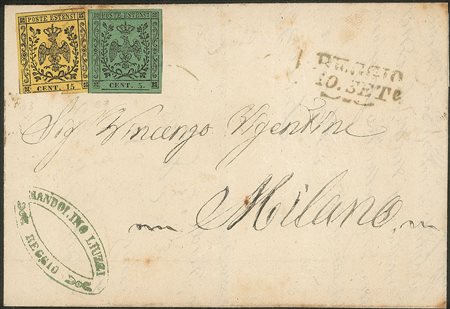 POSTE ESTENSI
CENT. 15.
POSTE ESTENSI
CENT. 5.
REGGIO
10. SETe
Sig Vincenzo Vigentine
Milano
MANDOLINO LIUZZI
REGGIO